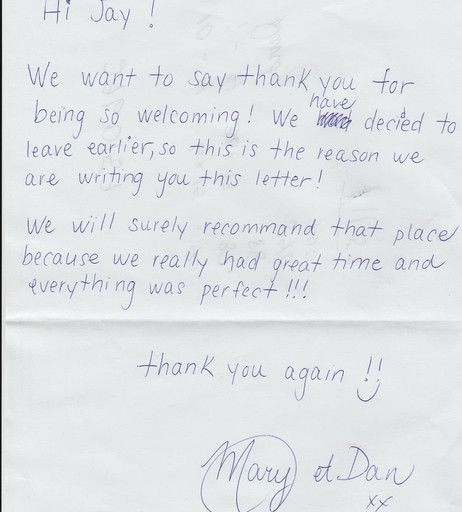 Hi Jay !
We want to say thank you for
being so welcoming! We have decided to
leave earlier, so this is the reason we
are writing you this letter!
We will surely recommand that place
because we really had great time and
everything was perfect!!!
thank you again !!
Mary et Dan
xx